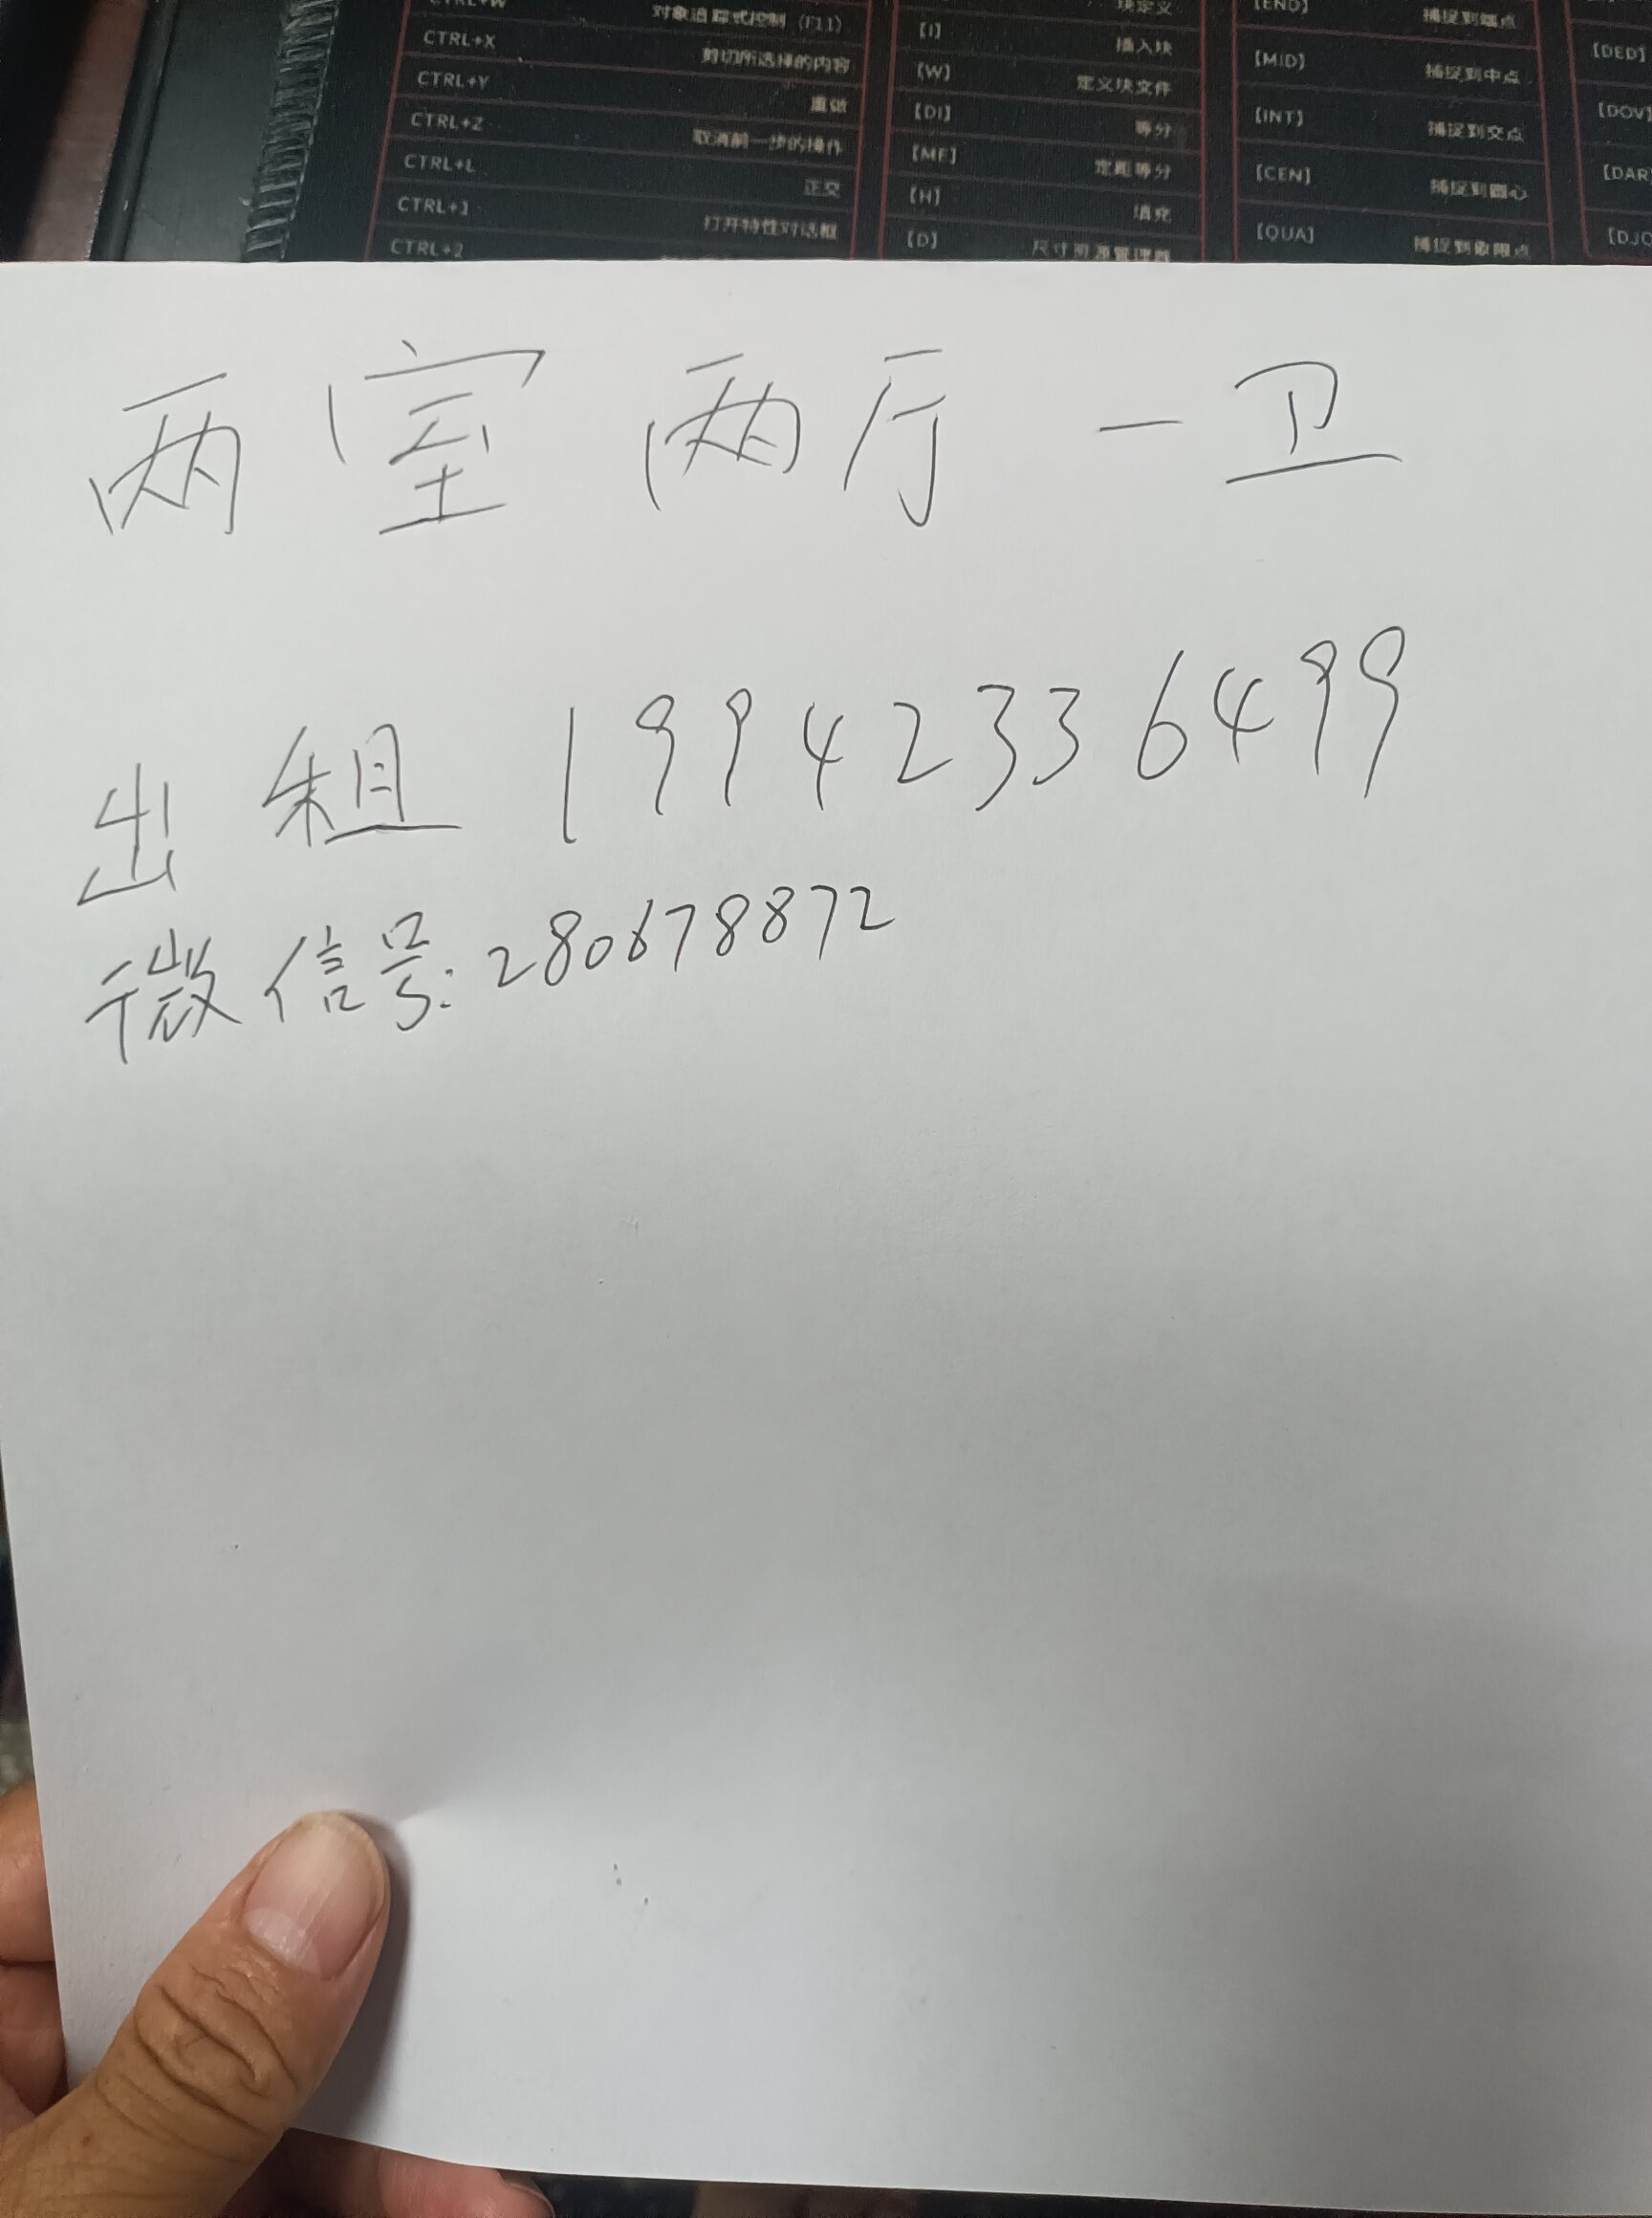 CTRL+W 对象追踪式控制（F11）
CTRL+X 剪切所选择的内容
CTRL+Y 重做
CTRL+Z 取消前一步的操作
CTRL+L 正交
CTRL+1 打开特性对话框
CTRL+2
块定义
[I] 插入块
[W] 定义块文件
[DI] 等分
[ME] 定距等分
[H] 填充
[D] 尺寸资源管理器
[END] 捕捉到端点
[MID] 捕捉到中点
[INT] 捕捉到交点
[CEN] 捕捉到圆心
[QUA] 捕捉到象限点
[DED]
[DOV]
[DAR
两室两厅一卫
出租 19942336499
微信号:280678872